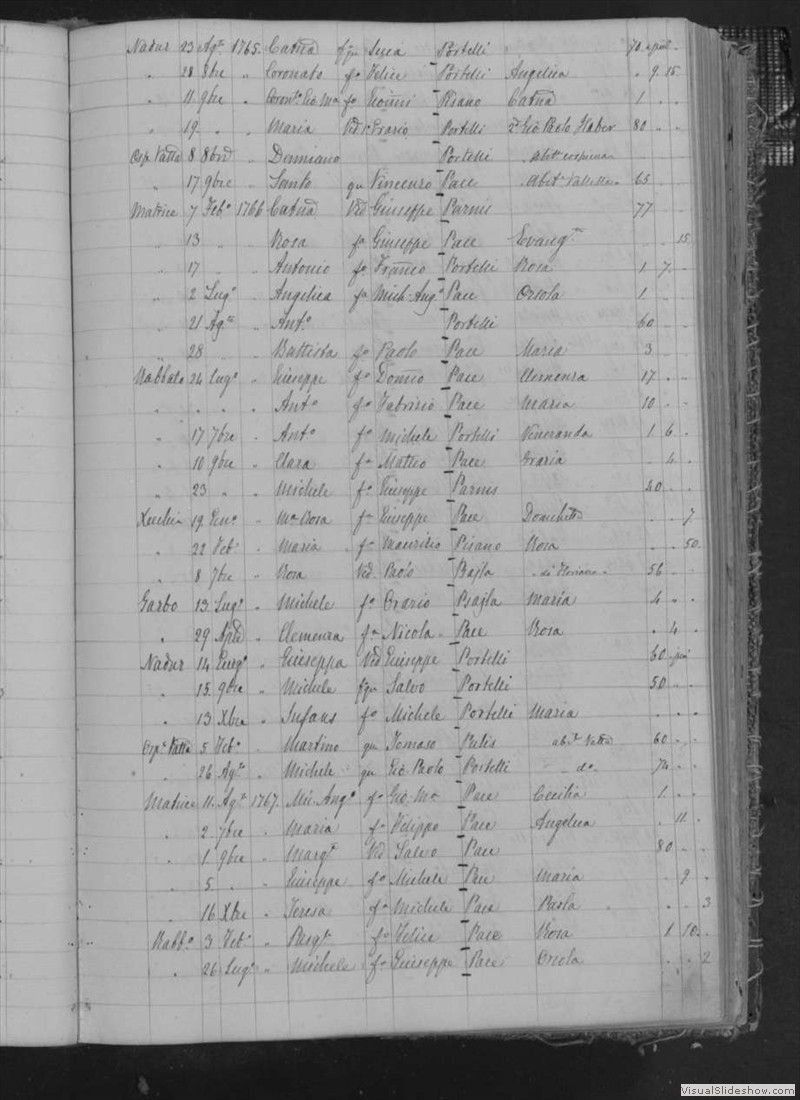 Nadur 23 Agto 1765. Catna fqu Portelli 70
" 28 8bre " Coronato fo Felice Portelli Angelica . 9. 15
" 11. 9bre " fo Pisano Catna 1 . .
" 19. " " Maria Vedo Portelli Gio Paolo 80 . .
8 8bre " Portelli
" 17. 9bre " Santo qu Vincenzo Pace 65
Matrice 7 Febo 1766 Catna Ved Giuseppe Parnis 77
" 13 " " Rosa fa Giuseppe Pace . . 15
" 17 " " Antonio fo Franco Portelli Rosa 1 7 .
" 2 Lugo " Angelica fa Mich. Ango Pace Orsola 1 .
" 21 Agto " Anto Portelli 60
" 28 " Battista fo Paolo Pace Maria 3
Rabbato 24 Lugo " Giuseppe fo Pace Clemenza 17 . .
" " " " Anto fo Fabrizio Pace Maria 10 . .
" 17 7bre " Anto fo Michele Portelli Veneranda 1 6 .
" 10 9bre " Clara fa Matteo Pace Grazia . 4 .
" 23 " " Michele fo Giuseppe Parnis 40 . .
19. " Ma Rosa fa Giuseppe Pace . . 7
" 22 Feb " Maria fa Maurizio Pisano Rosa . . 50
" 8 7bre " Rosa Ved. Paolo Bajla 56 . .
Garbo 13. Lugo " Michele fo Orazio Bajla Maria 4 . .
" 29 Aple " Clemenza fa Nicola Pace Rosa . 4 .
Nadur 14 " Giuseppa Ved Giuseppe Portelli 60
" 15. 9bre " Michele fqu Salvo Portelli 50 . .
" 13 Xbre " Infans fo Michele Portelli Maria . . .
5 Febo " Martino qu Tomaso 60 . .
" 26 Agto " Michele qu Gio. Paolo Portelli do 74 . .
Matrice 11. Agto 1767. Mic. Ango fo Gio. Ma Pace Cecilia 1 . .
" 2 7bre " Maria fa Filippo Pace Angelica . 11 .
" 1 9bre " Margta Ved Salvo Pace 80 . .
" 5 " " Giuseppe fo Michele Pace Maria . 9 .
" 16 Xbre " Teresa fa Michele Pace Paola . . 3
Rabbo 3 Feb " fo Felice Pace Rosa 1 10 .
" 26 Lugo " Michele fo Giuseppe Pace Orsola . . 2
VisualSlideshow.com